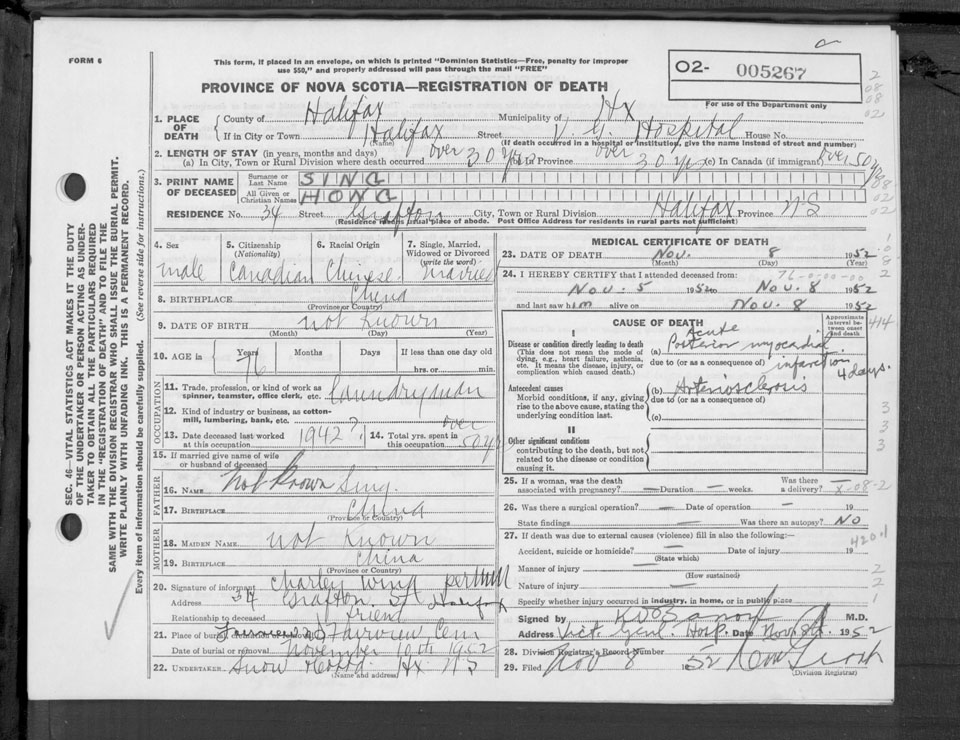 FORM 6
This form, if placed in an envelope, on which is printed "Dominion Statistics—Free, penalty for improper
use $50," and properly addressed will pass through the mail "FREE"
O2- 005267
PROVINCE OF NOVA SCOTIA—REGISTRATION OF DEATH
For use of the Department only
1. PLACE OF DEATH
County of Halifax Municipality of Hx
If in City or Town Halifax Street V. G. Hospital House No.
(Name) (If death occurred in a hospital or institution, give the name instead of street and number)
2. LENGTH OF STAY (in years, months and days)
(a) In City, Town or Rural Division where death occurred over 30 yrs (b) In Province over 30 yrs (c) In Canada (if immigrant) over 50 yrs
3. PRINT NAME OF DECEASED
Surname or Last Name SING
All Given or Christian Names HONG
RESIDENCE No. 34 Street Grafton City, Town or Rural Division Halifax Province N S
(Residence means usual place of abode. Post Office Address for residents in rural parts not sufficient)
4. Sex male
5. Citizenship (Nationality) Canadian
6. Racial Origin Chinese
7. Single, Married, Widowed or Divorced (write the word) married
8. BIRTHPLACE China
(Province or Country)
9. DATE OF BIRTH not known
(Month) (Day) (Year)
10. AGE in Years 76 Months Days If less than one day old
hrs. or min.
OCCUPATION
11. Trade, profession, or kind of work as spinner, teamster, office clerk, etc. Laundryman
12. Kind of industry or business, as cotton-mill, lumbering, bank, etc.
13. Date deceased last worked at this occupation 1942?
14. Total yrs. spent in this occupation over 50 yrs
15. If married give name of wife or husband of deceased not known
FATHER
16. NAME Sing
17. BIRTHPLACE China
(Province or Country)
MOTHER
18. MAIDEN NAME not known
19. BIRTHPLACE China
(Province or Country)
20. Signature of informant Charley Wing per
Address 34 Grafton St Halifax
Relationship to deceased friend
21. Place of burial Fairview Cem
Date of burial or removal November 10th 1952
22. UNDERTAKER Snow Hx N S
(Name and address)
MEDICAL CERTIFICATE OF DEATH
23. DATE OF DEATH Nov. 8 1952
(Month) (Day) (Year)
76-0-00-00
24. I HEREBY CERTIFY that I attended deceased from:
Nov. 5 1952 to Nov. 8 1952
and last saw him alive on Nov. 8 1952
CAUSE OF DEATH
Approximate interval between onset and death
414
I
Disease or condition directly leading to death
(This does not mean the mode of dying, e.g., heart failure, asthenia, etc. It means the disease, injury, or complication which caused death.)
(a) Acute Posterior myocardial infarction 4 days.
due to (or as a consequence of)
Antecedent causes
Morbid conditions, if any, giving rise to the above cause, stating the underlying condition last.
(b) Arteriosclerosis
due to (or as a consequence of)
(c)
II
Other significant conditions
contributing to the death, but not related to the disease or condition causing it.
25. If a woman, was the death associated with pregnancy? — Duration — weeks. Was there a delivery? —
X-08-2
26. Was there a surgical operation? — Date of operation — 19
State findings — Was there an autopsy? NO
27. If death was due to external causes (violence) fill in also the following:—
420.1
Accident, suicide or homicide? — Date of injury 19
(State which)
Manner of injury —
(How sustained)
Nature of injury —
Specify whether injury occurred in industry, in home, or in public place
Signed by M.D.
Address Vict. Genl. Hosp. Date Nov. 8th. 1952
28. Division Registrar's Record Number
29. Filed Nov 8 1952
(Division Registrar)
SEC. 46—VITAL STATISTICS ACT MAKES IT THE DUTY
OF THE UNDERTAKER OR PERSON ACTING AS UNDER-
TAKER TO OBTAIN ALL THE PARTICULARS REQUIRED
IN THE "REGISTRATION OF DEATH" AND TO FILE THE
SAME WITH THE DIVISION REGISTRAR WHO SHALL ISSUE THE BURIAL PERMIT.
WRITE PLAINLY WITH UNFADING INK. THIS IS A PERMANENT RECORD.
Every item of information should be carefully supplied. (See reverse side for instructions.)